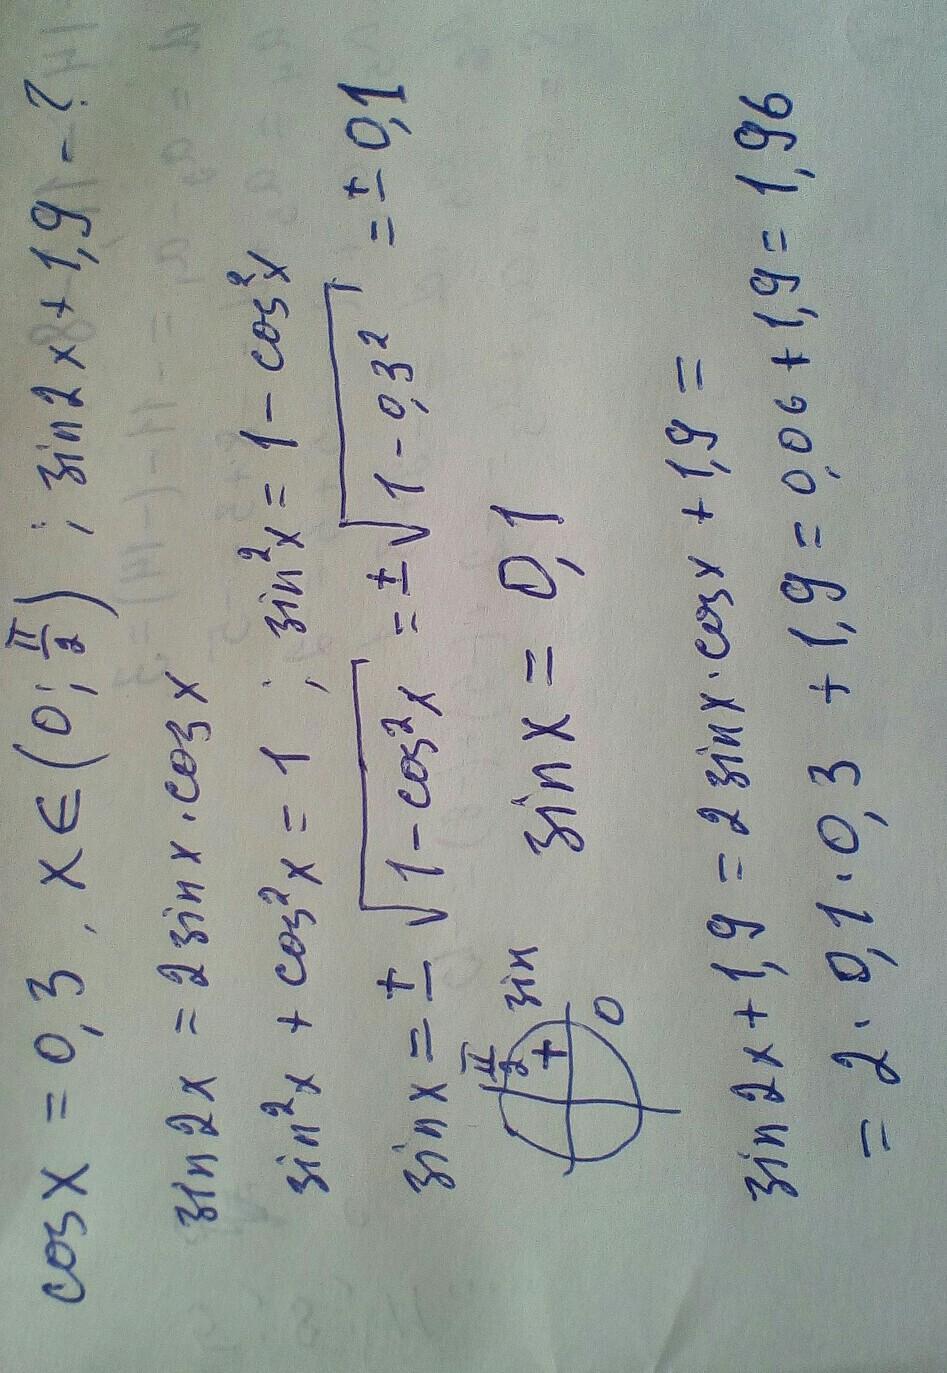 cos x = 0,3 , x ∈ (0; π/2) ; sin 2x + 1,9 - ?
sin 2x = 2 sin x · cos x
sin²x + cos²x = 1 ; sin²x = 1 - cos²x
sin x = ± √(1 - cos²x) = ± √(1 - 0,3²) = ± 0,1
π/2 sin
+
0
sin x = 0,1
sin 2x + 1,9 = 2 sin x · cos x + 1,9 =
= 2 · 0,1 · 0,3 + 1,9 = 0,06 + 1,9 = 1,96